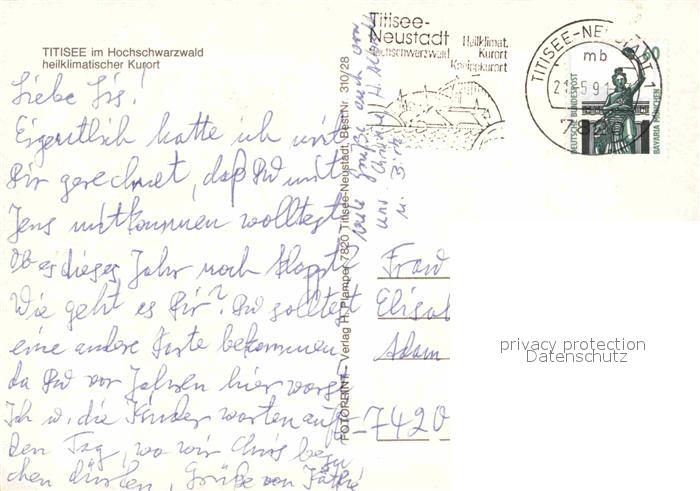 TITISEE im Hochschwarzwald
heilklimatischer Kurort
Liebe Lis!
Eigentlich hatte ich mit
Dir gerechnet, daß Du mit
Jens mitkommen wolltest
Ob es dieses Jahr noch klappt?
Wie geht es Dir? Du solltest
eine andere Karte bekommen,
da Du vor Jahren hier warst
Ich u. die Kinder warten auf
den Tag, wo wir Chris besu
chen dürfen, Grüße von Käthe
viele Grüße auch von
uns
u.
FOTOPRINT - Verlag H. Plamper, 7820 Titisee-Neustadt, Best.Nr. 310/28
Titisee-
Neustadt
Hochschwarzwald
Heilklimat.
Kurort
Kneippkurort
TITISEE-NEUSTADT 1
mb
5.91
7820
60
DEUTSCHE BUNDESPOST
BAVARIA MÜNCHEN
Frau
Elisab
Adam
7420
privacy protection
Datenschutz